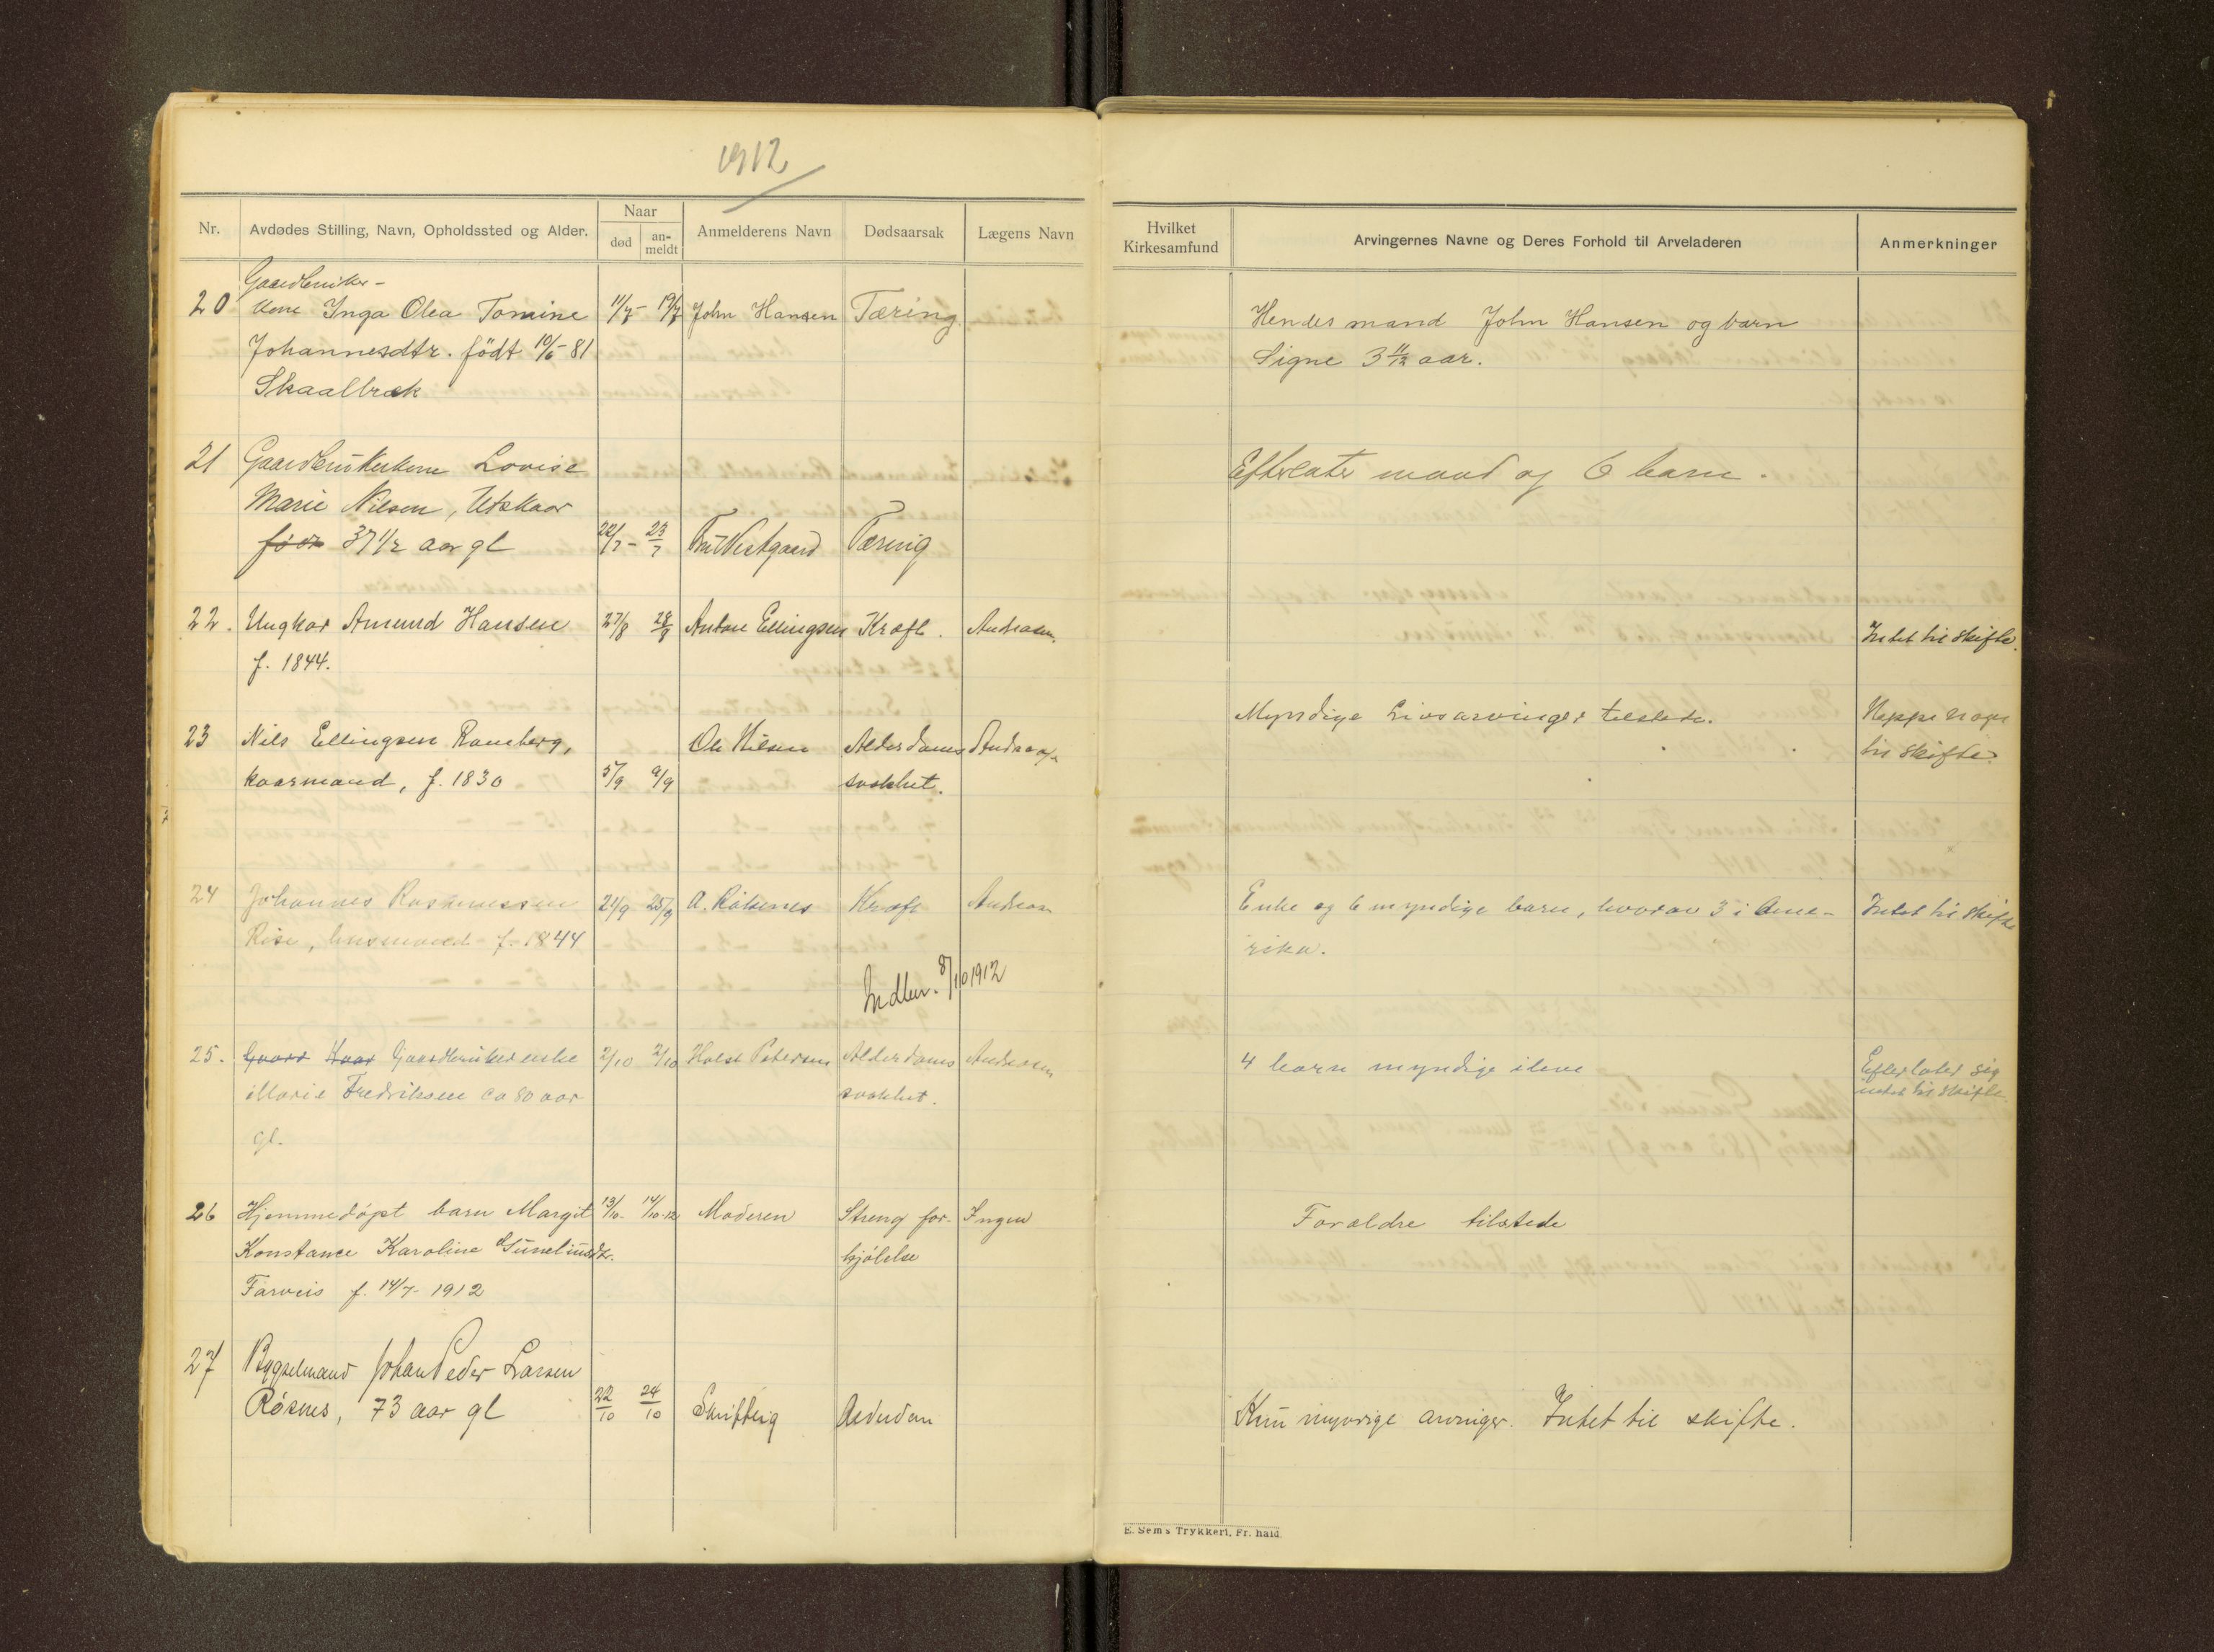 1912
Nr.
Avdødes Stilling, Navn, Opholdssted og Alder.
Naar
død
an-
meldt
Anmelderens Navn
Dødsaarsak
Lægens Navn
Hvilket
Kirkesamfund
Arvingernes Navne og Deres Forhold til Arveladeren
Anmerkninger
Gaardbruker-
20 kone Inga Olea Tomine 11/7- 19/7 John Hansen Tæring Hendes mand John Hansen og barn
Johannesdtr. født 10/6- 81 Signe 3 11/12 aar.
Skaalbræk
21 Gaardbrukerkone Lovise Efterlater mand og 6 barn.
Marie Nilsen, Utskaar
født 37 1/2 aar gl 22/7- 23/7 Vestgaard Tæring
22. Ungkar Amund Hansen 27/8 28/8 Anton Ellingsen Kræft. Andreasen. Intet til skifte.
f. 1844.
23 Nils Ellingsen Ramberg, Ole Nilsen Alderdoms Myndige Livsarvinger tilstede. Neppe noget
kaarmand, f. 1830 5/9 9/9 svakhet. til skifte.
24 Johannes Rasmussen 21/9 25/9 A. Röksnes Kræft Andreasen Enke og 6 myndige barn, hvorav 3 i Ame- Intet til skifte
Rise, husmand f. 1844 rika.
Indlev. 8/10 1912
25. Gaard Kaar Gaardbrukerenke 2/10 2/10 Holst Petersen Alderdoms Andreasen 4 barn myndige ilive Efterlater sig
Marie Fredriksen ca 80 aar svakhet. intet til skifte
gl.
26 Hjemmedöpt barn Margit 13/10- 14/10-12 Moderen Streng for- Ingen Forældre tilstede
Konstance Karoline kjölelse
f. 14/7- 1912
27 Bygselmand Johan Peder Larsen
Røsnes, 73 aar gl 22/10 24/10 Skriftlig Alderdom Kun myndige arvinger. Intet til skifte.
E. Sem's Trykkeri, Fr. hald.